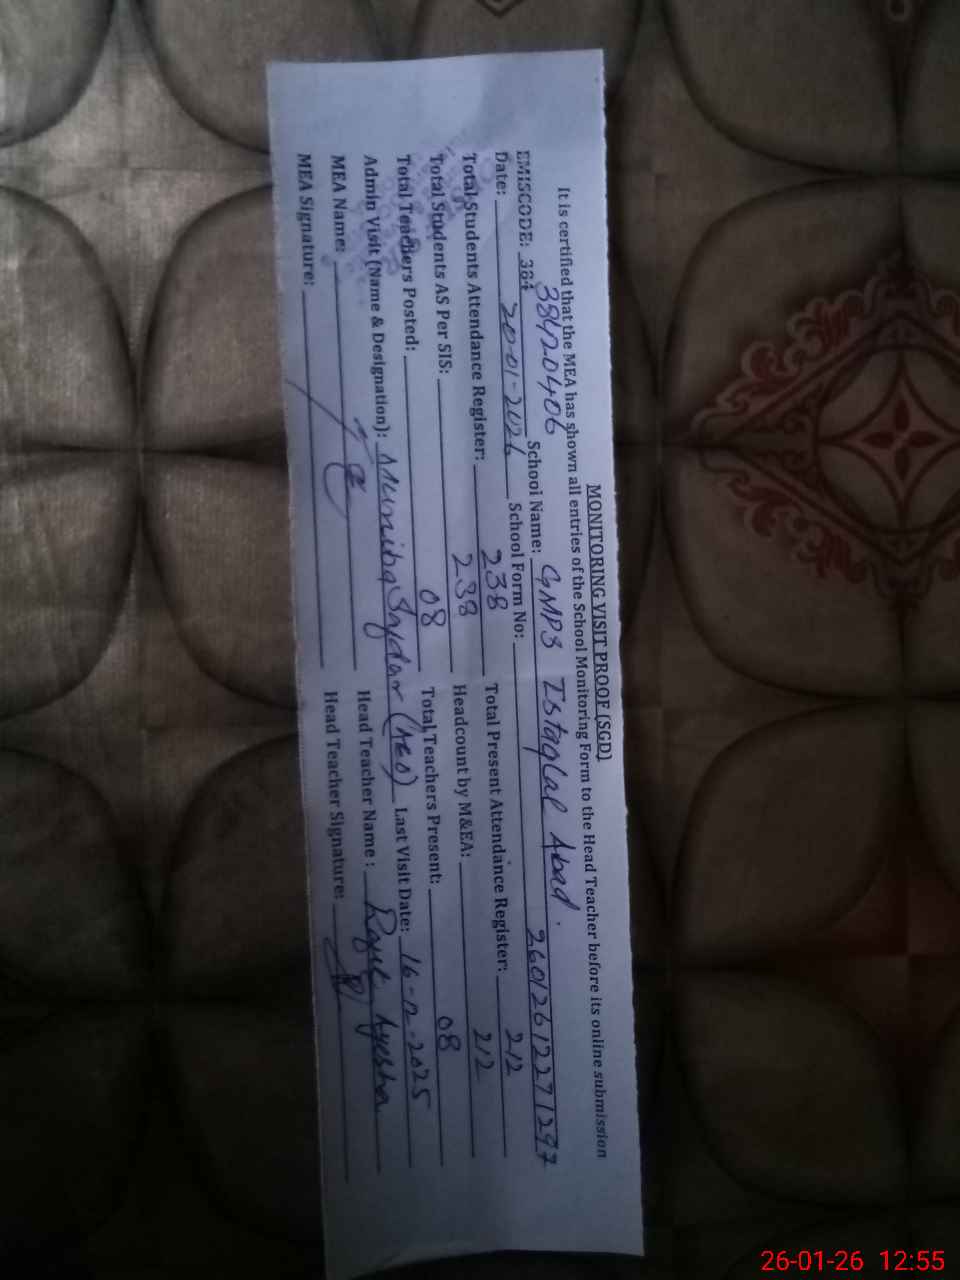 MONITORING VISIT PROOF (SGD)
It is certified that the MEA has shown all entries of the School Monitoring Form to the Head Teacher before its online submission
EMISCODE: 384 38420406 School Name: GMPS Istaqlal Abad.
Date: 20-01-2026 School Form No: 26012612271297
Total Students Attendance Register: 238 Total Present Attendance Register: 212
Total Students AS Per SIS: 238 Headcount by M&EA: 212
Total Teachers Posted: 08 Total Teachers Present: 08
Admin Visit (Name & Designation): (AEO) Last Visit Date: 16-12-2025
MEA Name: Head Teacher Name: Ayesha
MEA Signature: Head Teacher Signature:
26-01-26 12:55